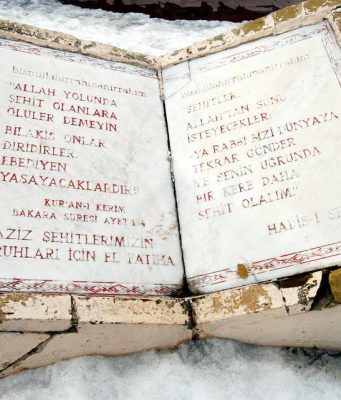 Bismillahirrahmanirrahim
"ALLAH YOLUNDA
ŞEHİT OLANLARA
ÖLÜLER DEMEYİN
BİLAKİS ONLAR
DİRİDİRLER.
EBEDİYEN
YAŞAYACAKLARDIR"
KUR'AN-I KERİM
BAKARA SURESİ AYET 154
AZİZ ŞEHİTLERİMİZİN
RUHLARI İÇİN EL FATİHA
Bismillahirrahmanirrahim
"ŞEHİTLER
ALLAH'TAN ŞUNU
İSTEYECEKLER:
-YA RABBİ BİZİ DÜNYAYA
TEKRAR GÖNDER
VE SENİN UĞRUNDA
BİR KERE DAHA
ŞEHİT OLALIM"
HADİS-İ